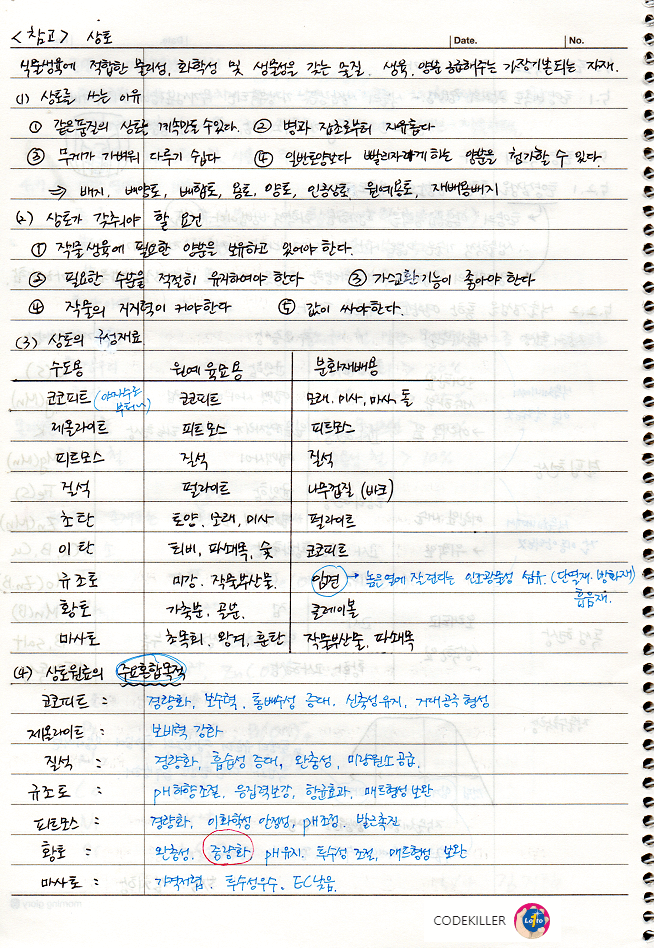 <참고> 상토
Date. No.
식물생육에 적합한 물리성, 화학성 및 생물성을 갖는 물질. 생육, 양분 공급해주는 가장 기본되는 자재.
(1) 상토를 쓰는 이유
① 같은품질의 상토를 계속만들 수있다. ② 병과 잡초로부터 자유롭다
③ 무게가 가벼워 다루기 쉽다 ④ 일반토양보다 빨리자라게 하는 양분을 첨가할 수 있다.
⇒ 배지, 배양토, 배합토, 용토, 양토, 인공상토, 원예용토, 재배용배지
(2) 상토가 갖춰야 할 요건
① 작물생육에 필요한 양분을 보유하고 있어야 한다.
② 필요한 수분을 적절히 유지하여야 한다 ③ 가스교환기능이 좋아야 한다
④ 작물의 지지력이 커야한다 ⑤ 값이 싸야한다.
(3) 상토의 구성재료
수도용 원예 육묘용 분화재배용
코코피트 (야자수로부터) 코코피트 모래, 미사, 마사, 돌
제올라이트 피트모스 피트모스
피트모스 질석 질석
질석 펄라이트 나무껍질 (바크)
초탄 토양, 모래, 미사 펄라이트
이탄 퇴비, 파쇄목, 숯 코코피트
규조토 미강, 작물부산물 암면 → 높은열에 잘견디는 인조광물성 섬유. (단열재, 방화재) 흡음재.
황토 가축분, 골분 클레이볼
마사토 초목회, 왕겨, 훈탄 작물부산물, 파쇄목
(4) 상토원료의 주요혼합목적
코코피트 : 경량화, 보수력, 통배수성 증대, 신축성유지, 거대공극 형성
제올라이트 : 보비력 강화
질석 : 경량화, 흡습성 증대, 완충성, 미량원소공급.
규조토 : pH하향조절, 응집력보강, 항균효과, 매트형성 보완
피트모스 : 경량화, 이화학성 안정성, pH조절, 발근촉진
황토 : 완충성, 중량화, pH유지, 투수성 조절, 매트형성 보완
마사토 : 가격저렴, 투수성우수, EC낮음.
morning glory
CODEKILLER
Lotto